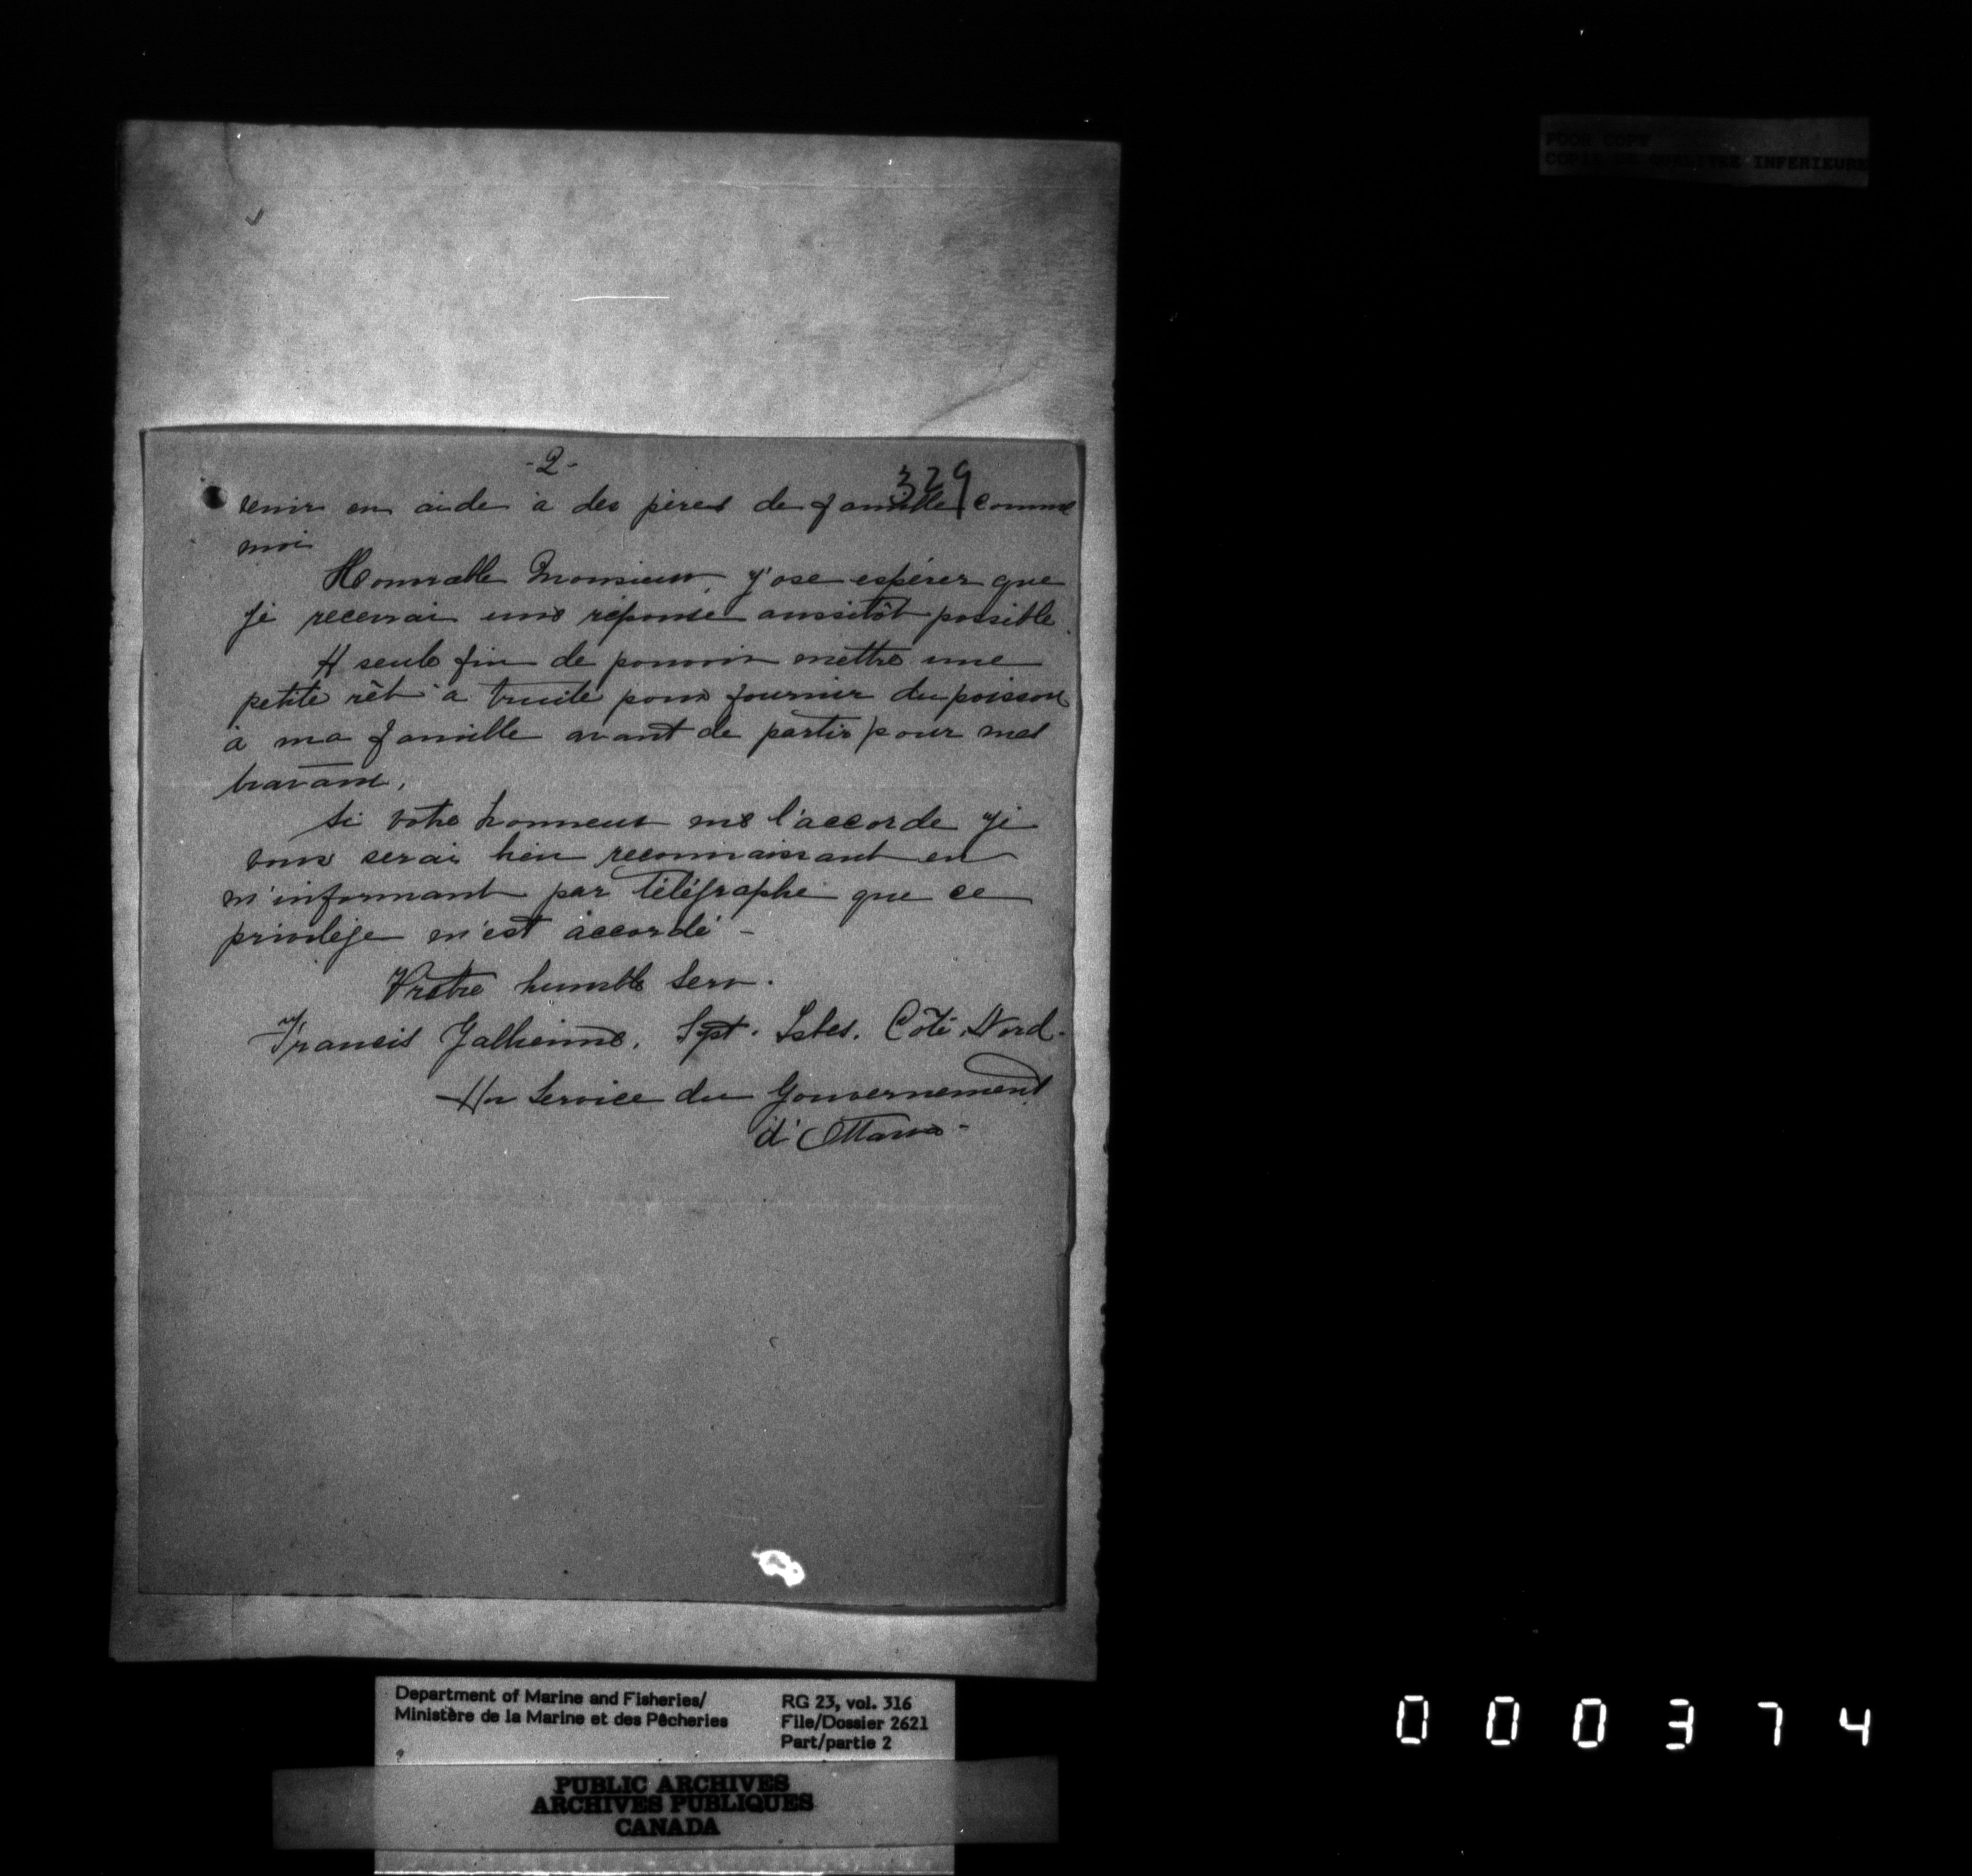 POOR COPY
COPIE DE QUALITEE INFERIEURE
-2-
329
venir en aide à des pères de famille comme
moi
Honorable Monsieur j'ose espérer que
je recevrai une réponse aussitôt possible.
A seule fin de pouvoir mettre une
petite rêt à truite pour fournir du poisson
à ma famille avant de partir pour mes
travaux.
Si votre honneur me l'accorde je
vous serai bien reconnaissant en
m'informant par télégraphe que ce
privilège m'est accordé -
Vôtre humble Serv.
Francis Galhienne. Sept. Isles. Côté Nord-
Au Service du Gouvernement
d'Ottawa-
Department of Marine and Fisheries/
Ministère de la Marine et des Pêcheries
RG 23, vol. 316
File/Dossier 2621
Part/partie 2
PUBLIC ARCHIVES
ARCHIVES PUBLIQUES
CANADA
000374